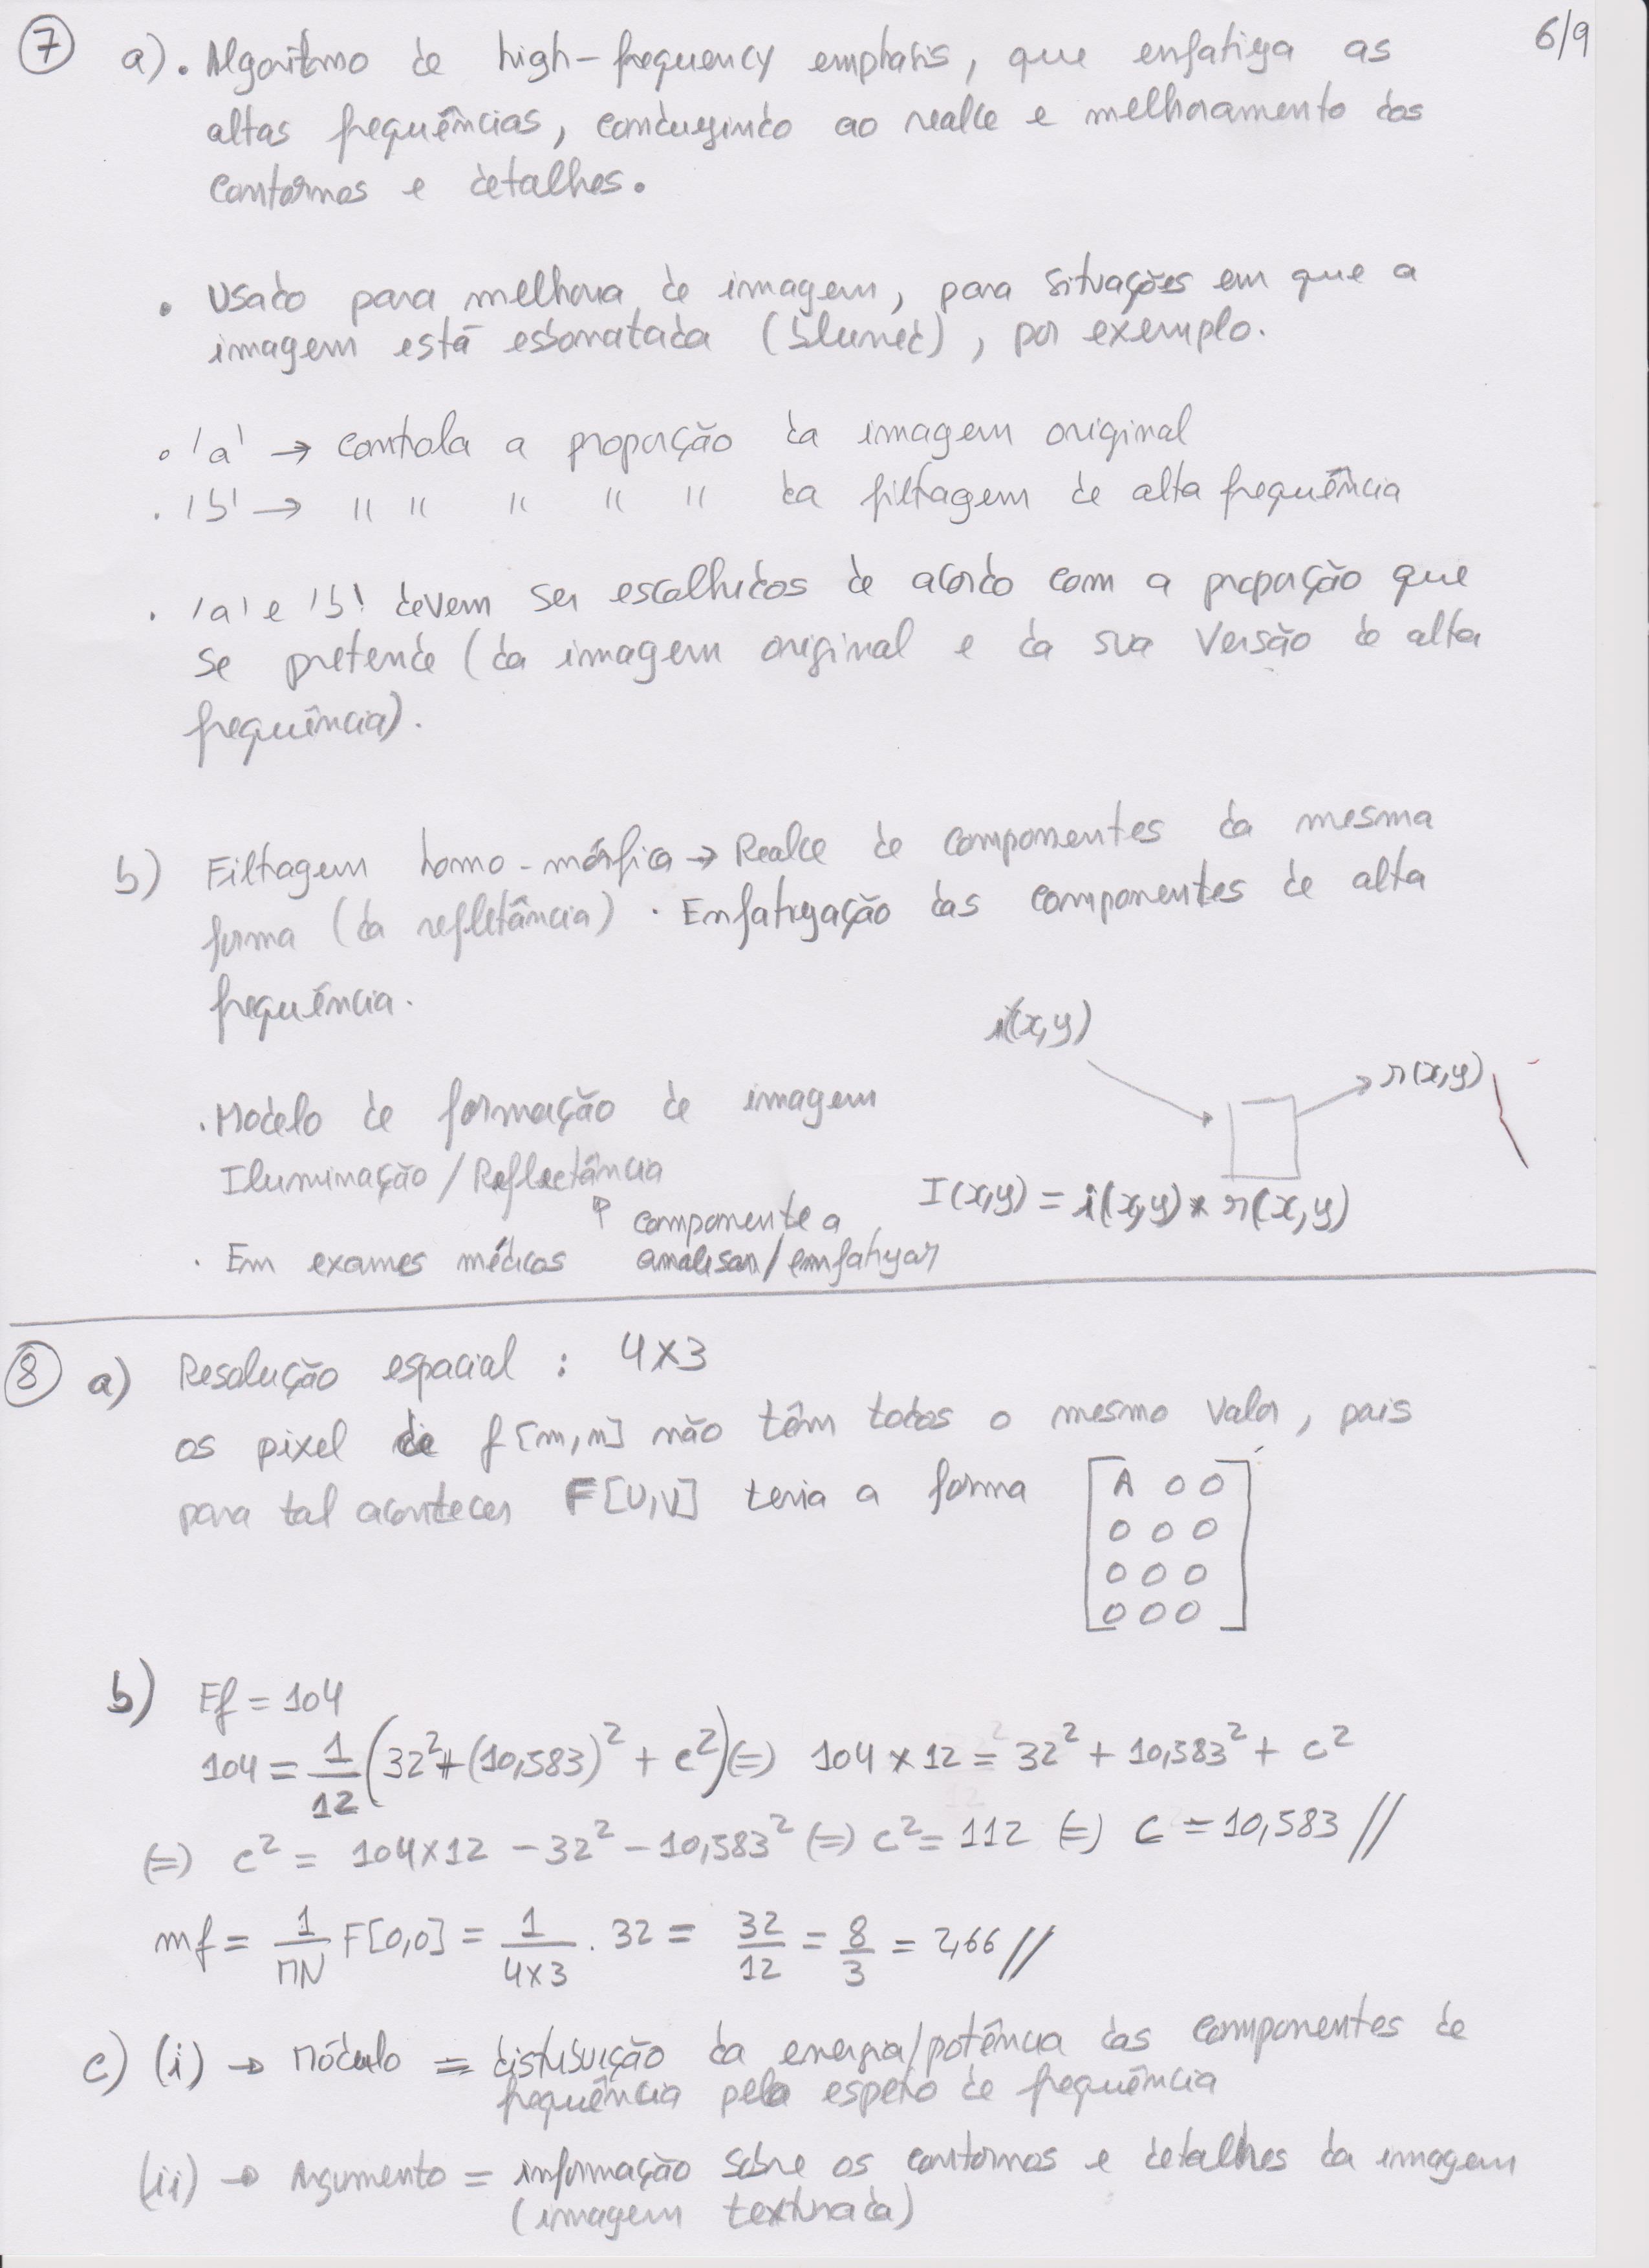 6/9
7 a). Algoritmo de high-frequency emphatis, que enfatiza as
altas frequências, conduzindo ao realce e melhoramento dos
contornos e detalhes.
• Usado para melhoria de imagem, para situações em que a
imagem está esborratada (blurred), por exemplo.
• 'a' → controla a proporção da imagem original
• 'b' → " " " " " da filtragem de alta frequência
• 'a' e 'b' devem ser escolhidos de acordo com a proporção que
se pretende (da imagem original e da sua versão de alta
frequência).
b) Filtragem homo-mórfica → Realce de componentes da mesma
forma (da refletância). Enfatização das componentes de alta
frequência.
i(x,y)
r(x,y)
• Modelo de formação de imagem
Iluminação / Reflectância
I(x,y) = i(x,y) * r(x,y)
componente a
• Em exames médicos analisar/enfatizar
8 a) Resolução espacial : 4x3
os pixel de f[m,n] não têm todos o mesmo valor, pois
para tal acontecer F[U,V] teria a forma
A 0 0
0 0 0
0 0 0
0 0 0
b) Ef = 104
104 = 1/12 (32² + (10,583)² + c²) (=) 104 x 12 = 32² + 10,583² + c²
(=) c² = 104x12 - 32² - 10,583² (=) c² = 112 (=) c = 10,583 //
mf = 1/MN F[0,0] = 1/4x3 . 32 = 32/12 = 8/3 = 2,66 //
c) (i) → Módulo = distribuição da energia/potência das componentes de
frequência pelo espetro de frequência
(ii) → Argumento = informação sobre os contornos e detalhes da imagem
(imagem texturada)